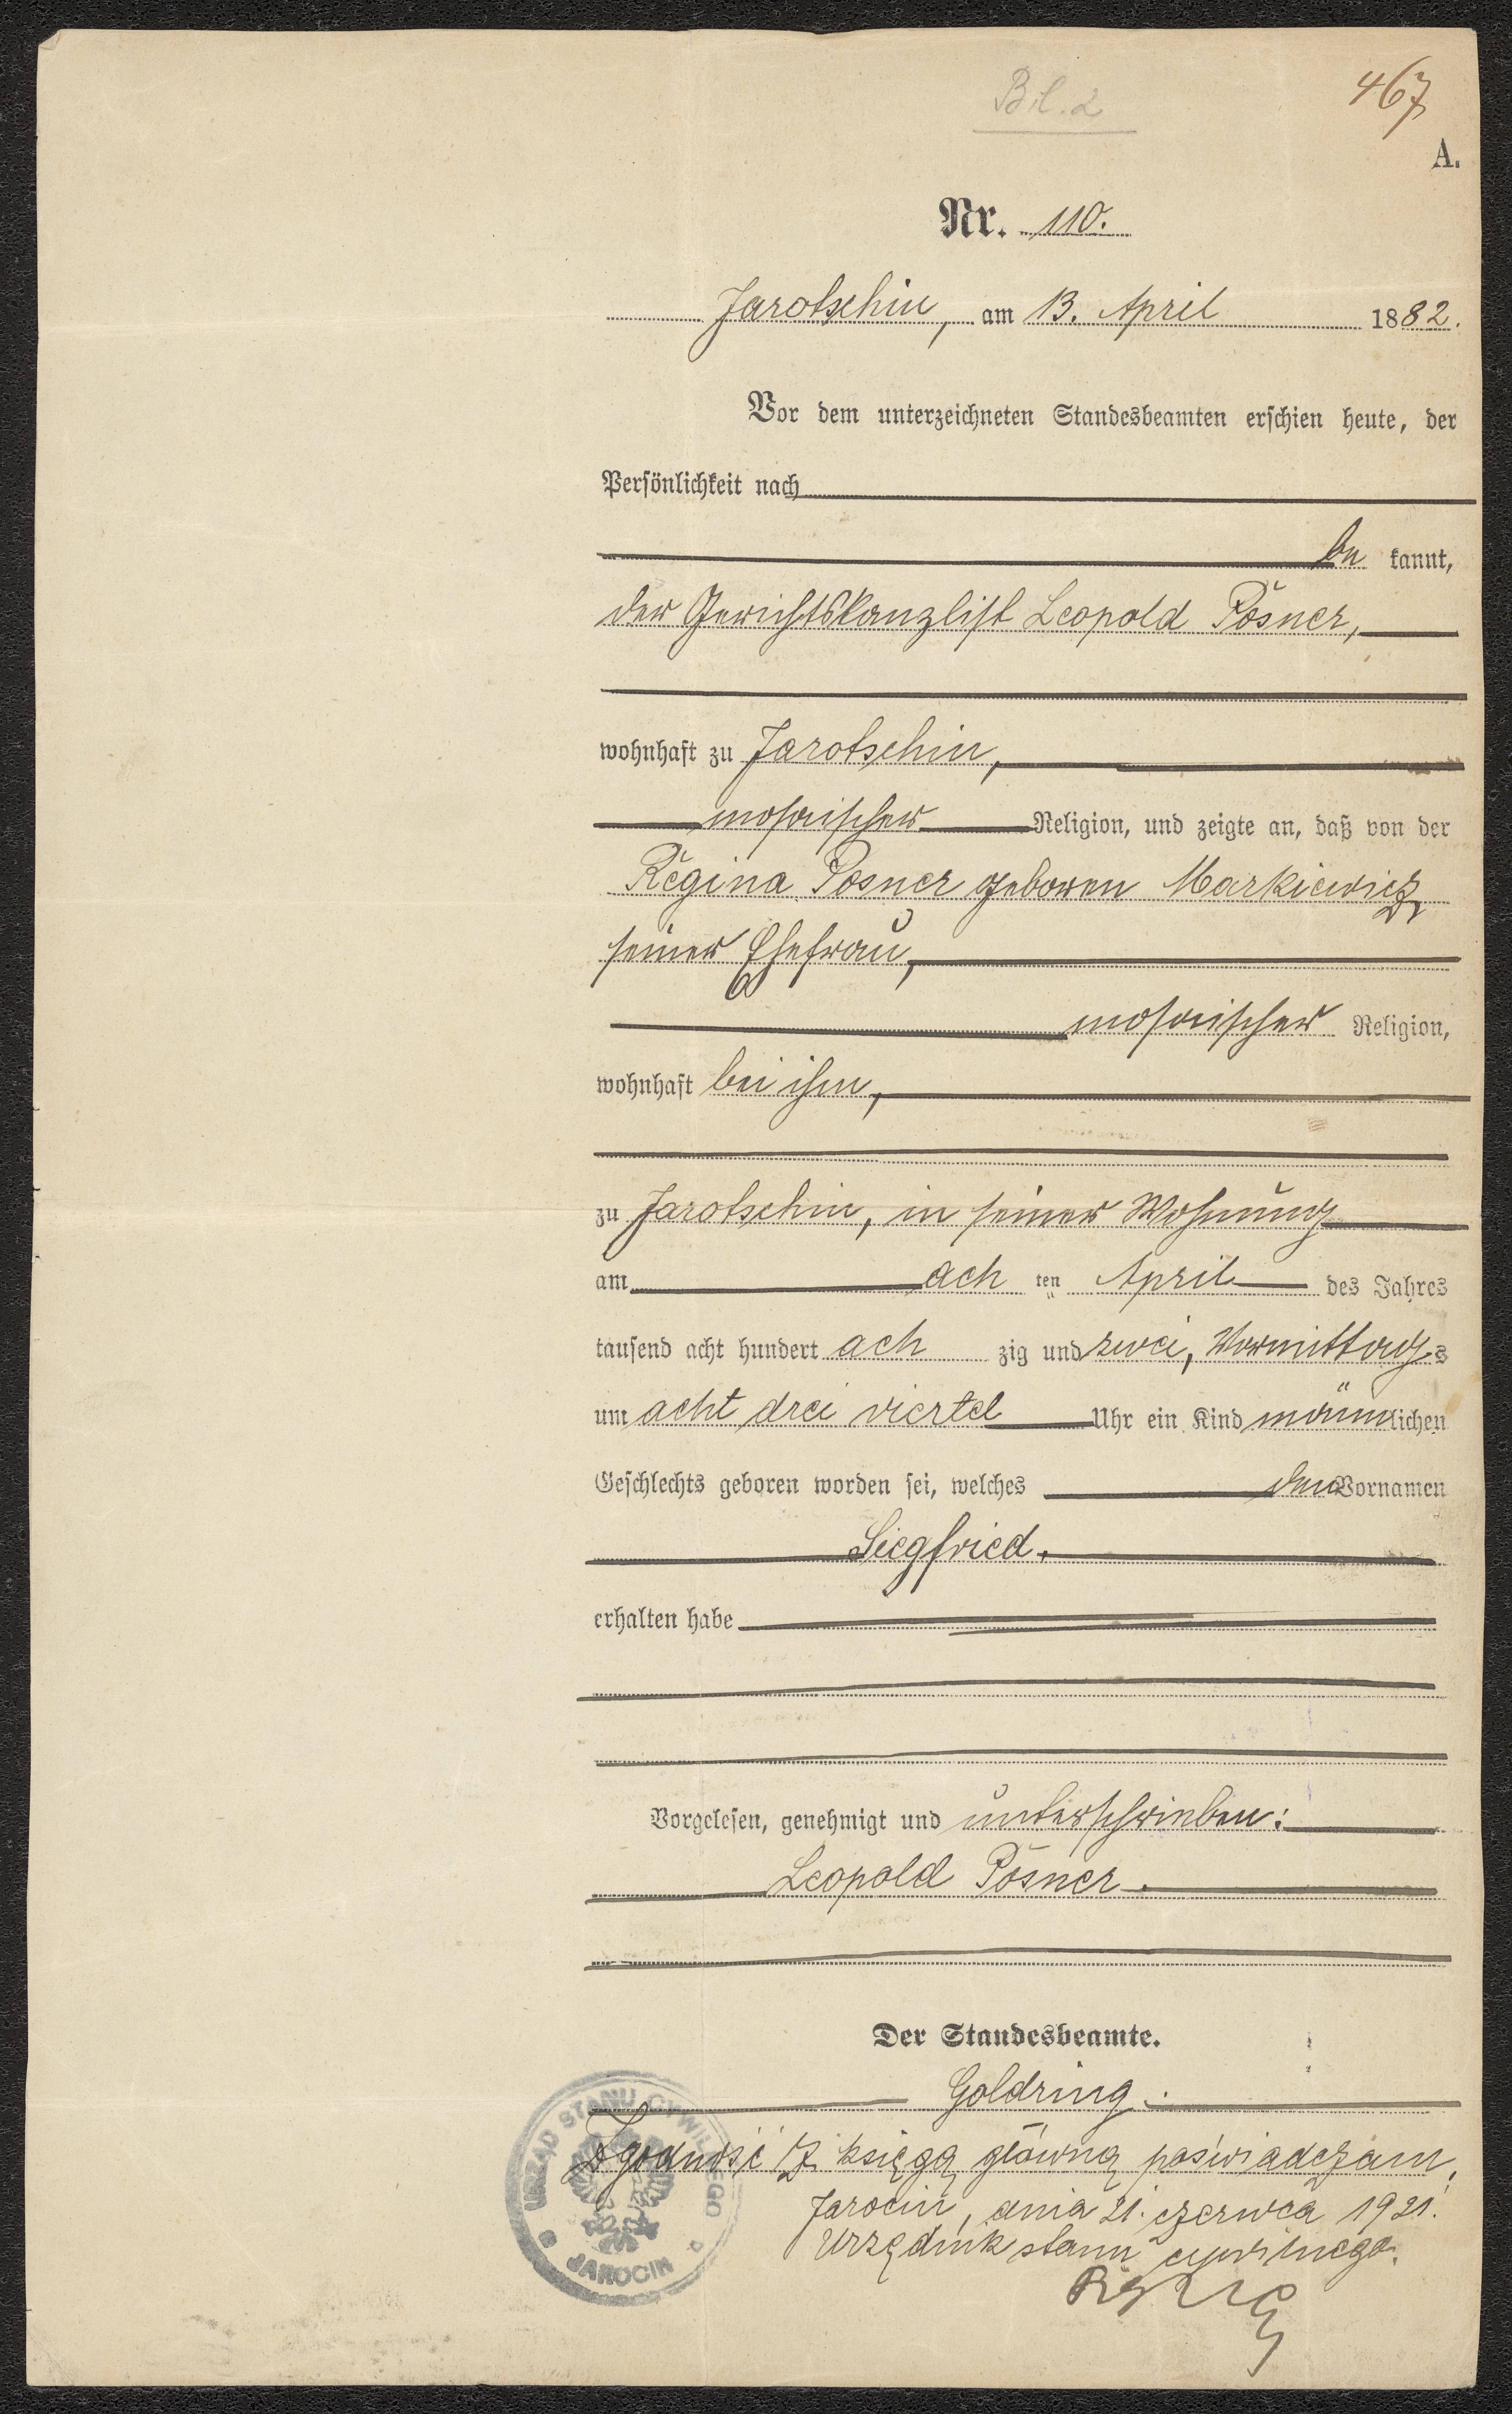 Bl. 2
467
A.
Nr. 110.
Jarotschin, am 13. April 1882.
Vor dem unterzeichneten Standesbeamten erschien heute, der
Persönlichkeit nach
be kannt,
der Gerichtskanzlist Leopold Posner,
wohnhaft zu Jarotschin,
mosaischer Religion, und zeigte an, daß von der
Regina Posner geboren Markiewicz
seiner Ehefrau,
mosaischer Religion,
wohnhaft bei ihm,
zu Jarotschin, in seiner Wohnung
am ach ten April des Jahres
tausend acht hundert ach zig und zwei, Vormittags
um acht drei viertel Uhr ein Kind männlichen
Geschlechts geboren worden sei, welches den Vornamen
Siegfried.
erhalten habe
Vorgelesen, genehmigt und unterschrieben:
Leopold Posner.
Der Standesbeamte.
Goldring.
Zgodność z księgą główną poświadczam.
Jarocin, dnia 21. czerwca 1921.
Urzędnik stanu cywilnego.
URZĄD STANU CYWILNEGO
JAROCIN